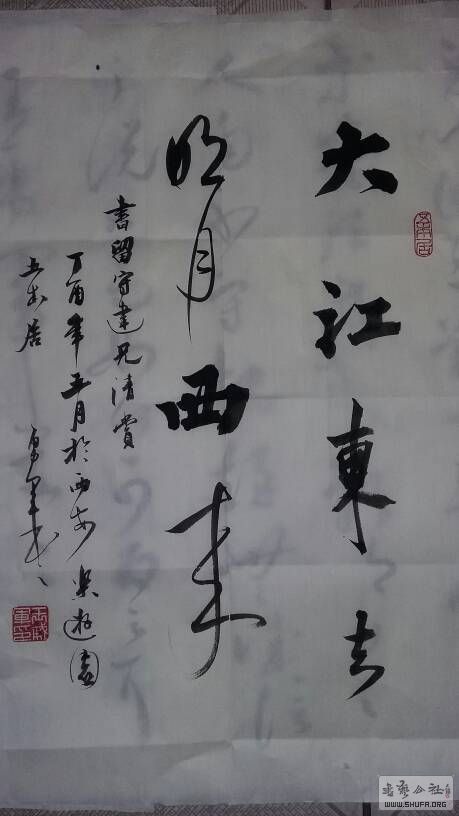 大江東去
明月西来
書留守建兄清賞
丁酉年五月於西安樂遊園
上木居
书艺公社
WWW.SHUFA.ORG